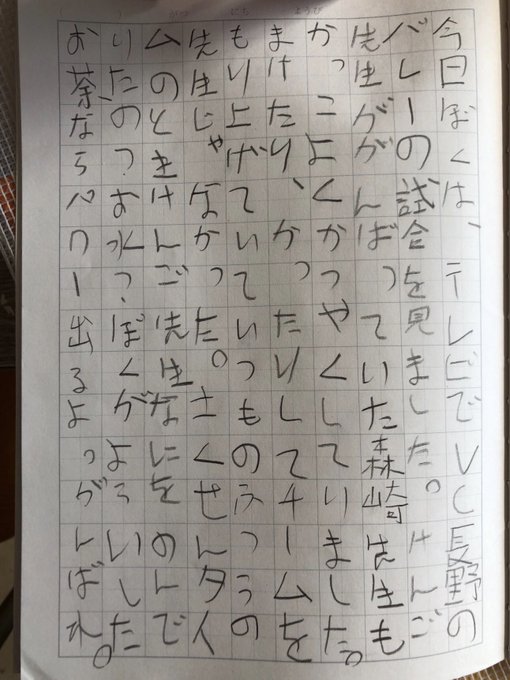 がつ にち ようび
今日ぼくは、テレビでVC長野の
バレーの試合を見ました。けんご
先生ががんばっていた森崎先生も
かっこよくかつやくしていました。
まけたり、かったりしてチームを
もり上げていていつものふつうの
先生じゃなかった。さくせんタイ
ムのときけんご先生なにをのんで
いたの?お水?ぼくがよういした
お茶、ならパワー出るよっがんばれ。